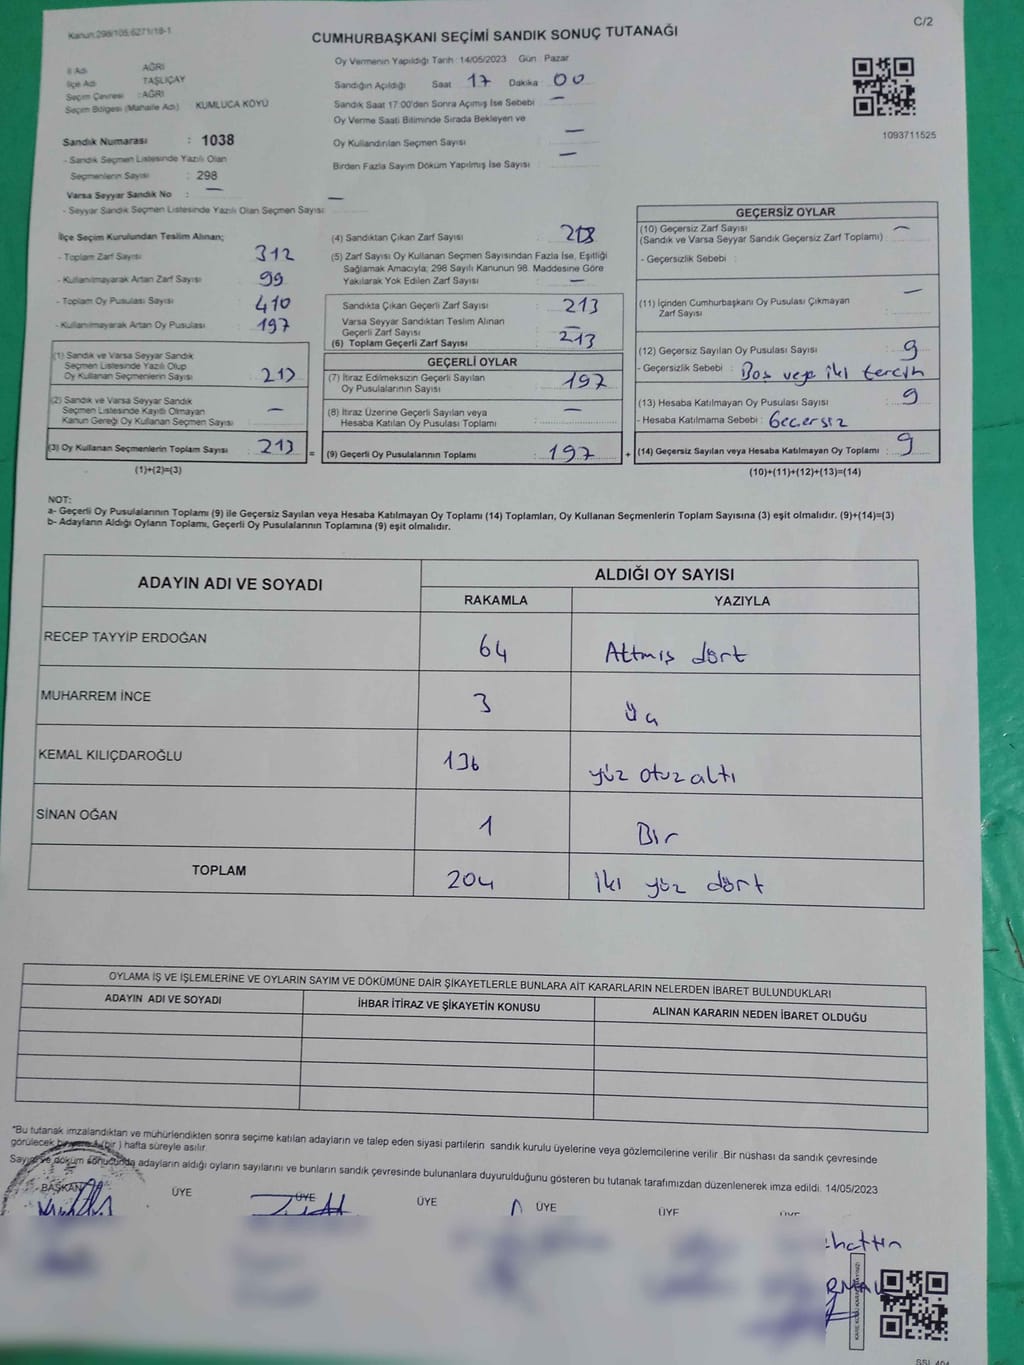 Kanun:298/105,6271/18-1
C/2
CUMHURBAŞKANI SEÇİMİ SANDIK SONUÇ TUTANAĞI
İl Adı AĞRI
İlçe Adı TAŞLIÇAY
Seçim Çevresi : AĞRI
Seçim Bölgesi (Mahalle Adı) KUMLUCA KÖYÜ
Sandık Numarası : 1038
- Sandık Seçmen Listesinde Yazılı Olan
Seçmenlerin Sayısı : 298
Varsa Seyyar Sandık No : —
- Seyyar Sandık Seçmen Listesinde Yazılı Olan Seçmen Sayısı: —
Oy Vermenin Yapıldığı Tarih : 14/05/2023 Gün : Pazar
Sandığın Açıldığı Saat 17 Dakika 00
Sandık Saat 17:00'den Sonra Açımış İse Sebebi —
Oy Verme Saati Bitiminde Sırada Bekleyen ve
Oy Kullandırılan Seçmen Sayısı —
Birden Fazla Sayım Döküm Yapılmış İse Sayısı —
1093711525
İlçe Seçim Kurulundan Teslim Alınan;
- Toplam Zarf Sayısı : 312
- Kullanılmayarak Artan Zarf Sayısı : 99
- Toplam Oy Pusulası Sayısı : 410
- Kullanılmayarak Artan Oy Pusulası : 197
(1) Sandık ve Varsa Seyyar Sandık
Seçmen Listesinde Yazılı Olup
Oy Kullanan Seçmenlerin Sayısı : 213
(2) Sandık ve Varsa Seyyar Sandık
Seçmen Listesinde Kayıtlı Olmayan
Kanun Gereği Oy Kullanan Seçmen Sayısı : —
(3) Oy Kullanan Seçmenlerin Toplam Sayısı : 213 =
(1)+(2)=(3)
(4) Sandıktan Çıkan Zarf Sayısı :
(5) Zarf Sayısı Oy Kullanan Seçmen Sayısından Fazla İse, Eşitliği
Sağlamak Amacıyla; 298 Sayılı Kanunun 98. Maddesine Göre
Yakılarak Yok Edilen Zarf Sayısı : —
Sandıkta Çıkan Geçerli Zarf Sayısı : 213
Varsa Seyyar Sandıktan Teslim Alınan
Geçerli Zarf Sayısı : —
(6) Toplam Geçerli Zarf Sayısı : 213
GEÇERLİ OYLAR
(7) İtiraz Edilmeksizin Geçerli Sayılan
Oy Pusulalarının Sayısı : 197
(8) İtiraz Üzerine Geçerli Sayılan veya
Hesaba Katılan Oy Pusulası Toplamı : —
(9) Geçerli Oy Pusulalarının Toplamı : 197 +
GEÇERSİZ OYLAR
(10) Geçersiz Zarf Sayısı —
(Sandık ve Varsa Seyyar Sandık Geçersiz Zarf Toplamı) :
- Geçersizlik Sebebi :
(11) İçinden Cumhurbaşkanı Oy Pusulası Çıkmayan —
Zarf Sayısı :
(12) Geçersiz Sayılan Oy Pusulası Sayısı : 9
- Geçersizlik Sebebi : Boş veya iki tercih
(13) Hesaba Katılmayan Oy Pusulası Sayısı : 9
- Hesaba Katılmama Sebebi : Geçersiz
(14) Geçersiz Sayılan veya Hesaba Katılmayan Oy Toplamı : 9
(10)+(11)+(12)+(13)=(14)
NOT:
a- Geçerli Oy Pusulalarının Toplamı (9) ile Geçersiz Sayılan veya Hesaba Katılmayan Oy Toplamı (14) Toplamları, Oy Kullanan Seçmenlerin Toplam Sayısına (3) eşit olmalıdır. (9)+(14)=(3)
b- Adayların Aldığı Oyların Toplamı, Geçerli Oy Pusulalarının Toplamına (9) eşit olmalıdır.
ADAYIN ADI VE SOYADI ALDIĞI OY SAYISI
RAKAMLA YAZIYLA
RECEP TAYYİP ERDOĞAN 64 Altmış dört
MUHARREM İNCE 3 Üç
KEMAL KILIÇDAROĞLU 136 yüz otuz altı
SİNAN OĞAN 1 Bir
TOPLAM 204 iki yüz dört
OYLAMA İŞ VE İŞLEMLERİNE VE OYLARIN SAYIM VE DÖKÜMÜNE DAİR ŞİKAYETLERLE BUNLARA AİT KARARLARIN NELERDEN İBARET BULUNDUKLARI
ADAYIN ADI VE SOYADI İHBAR İTİRAZ VE ŞİKAYETİN KONUSU ALINAN KARARIN NEDEN İBARET OLDUĞU
*Bu tutanak imzalandıktan ve mühürlendikten sonra seçime katılan adayların ve talep eden siyasi partilerin sandık kurulu üyelerine veya gözlemcilerine verilir .Bir nüshası da sandık çevresinde
görülecek bir yere 1 (bir ) hafta süreyle asılır.
Sayım ve döküm sonucunda adayların aldığı oyların sayılarını ve bunların sandık çevresinde bulunanlara duyurulduğunu gösteren bu tutanak tarafımızdan düzenlenerek imza edildi. 14/05/2023
BAŞKAN ÜYE ÜYE ÜYE ÜYE ÜYE ÜYE